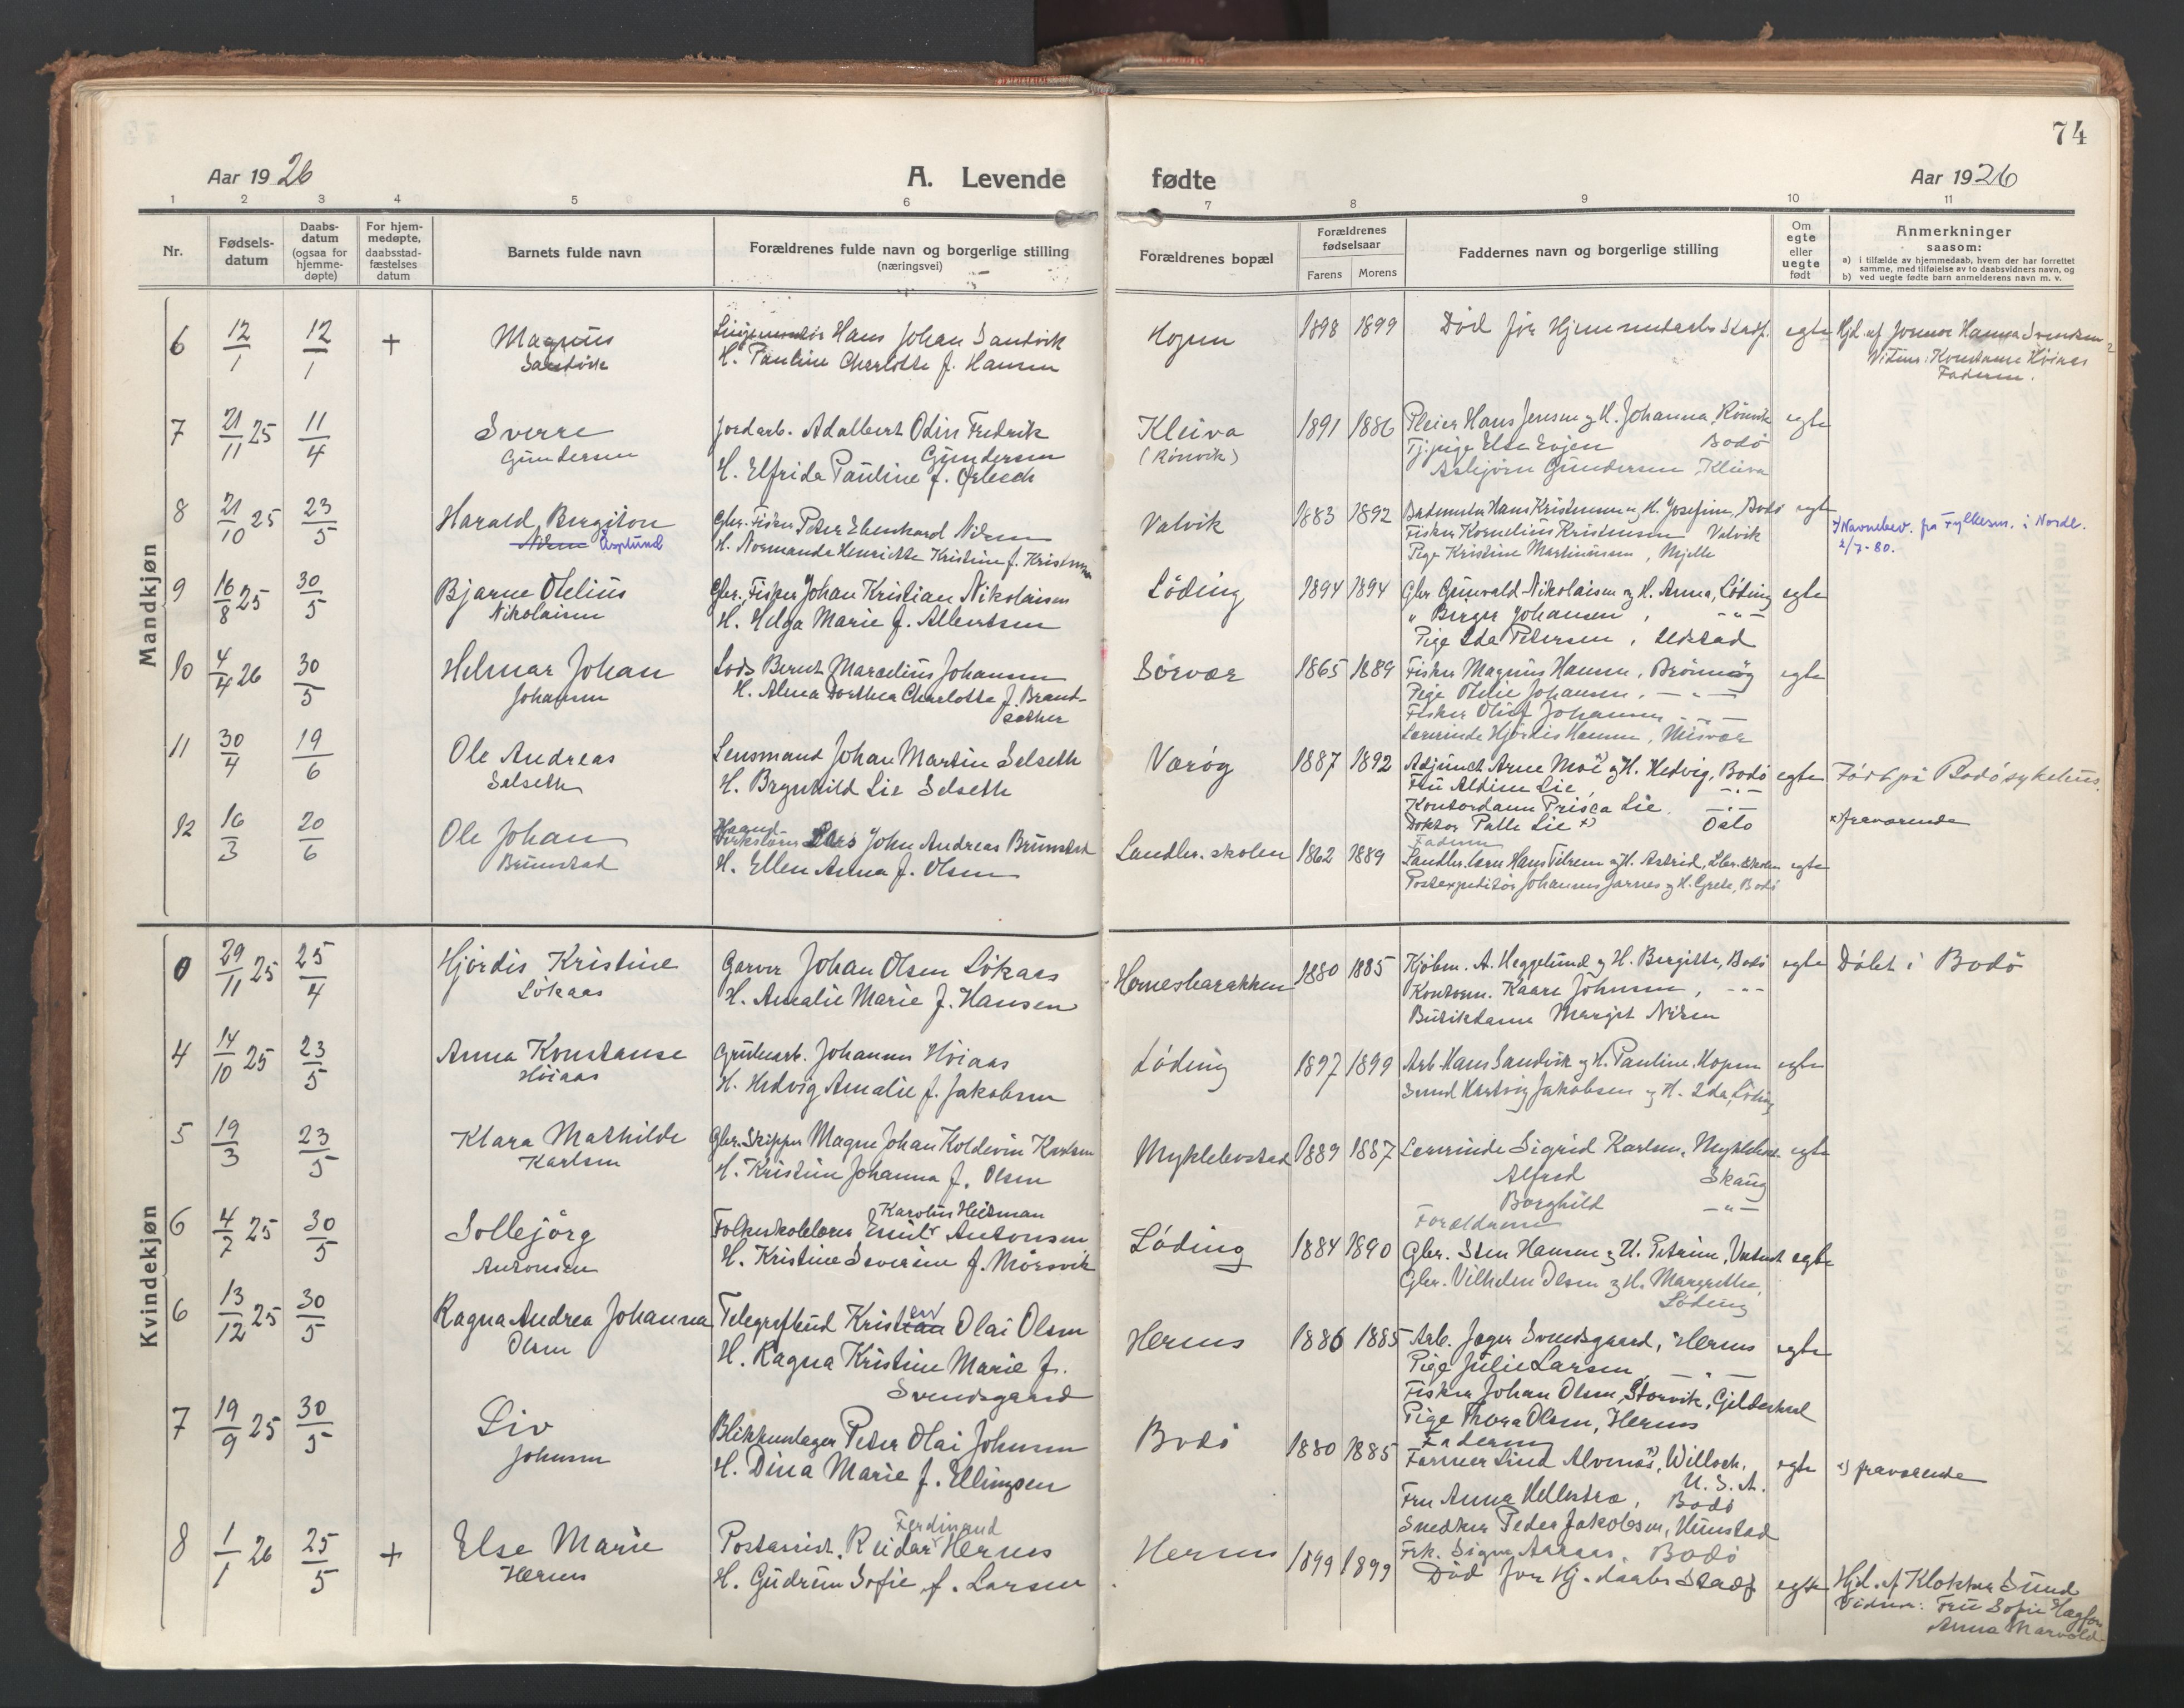 74
Aar 1926 A. Levende fødte Aar 1926
1 2 3 4 5 6 7 8 9 10 11
Nr.
Fødsels-
datum
Daabs-
datum
(ogsaa for
hjemme-
døpte)
For hjem-
medøpte,
daabsstad-
fæstelses
datum
Barnets fulde navn
Forældrenes fulde navn og borgerlige stilling
(næringsvei)
Forældrenes bopæl
Forældrenes
fødselsaar
Farens Morens
Faddernes navn og borgerlige stilling
Om
egte
eller
uegte
født
Anmerkninger
saasom:
a) i tilfælde av hjemmedaab, hvem der har forrettet
samme, med tilføielse av to daabsvidners navn, og
b) ved uegte fødte barn anmelderens navn m. v.
Mandkjøn
6 12/1 12/1 + Magnus
Sandvik
Hans Johan Sandvik
H. Pauline Charlotte f. Hansen
Kopen 1898 1899 Død før Hjemmedaabs Stadf. egte
Hjd. af Jormor Hanna Svendsen
Vitner: Konstanse Höiaas
Faderen.
7 21/11 25 11/4 Sverre
Gundersen
Jordarb. Adalbert Odin Fredrik
Gundersen
H. Elfrida Pauline f.
Kleiva
(Rönvik)
1891 1886 Pleier Hans Jensen og H. Johanna, Rönvik egte
Tj.pige Else Evjen Bodö
Asbjörn Gundersen, Kleiva
8 21/10 25 23/5 Harald Bergiton
Nilsen Asplund
Gbr. Fisker Peter Edenhard Nilsen
H. Normanda Henriette Kristine f. Kristensen
Valvik 1883 1892 Hans Kristensen og H. Josefine, Bodö egte
Fisker Kornelius Kristensen Valvik
Pige Kristine Martinussen, Mjelle
Navnebev. fra Fylkesm. i Nordl.
2/7-80.
9 16/8 25 30/5 Bjarne Otelius
Nikolaisen
Gbr. Fisker Johan Kristian Nikolaisen
H. Helga Marie f. Albertsen
Löding 1894 1894 Gbr Gunvald Nikolaisen og H. Anna, Löding egte
" Birger Johansen, - " -
Pige Ida Petersen, Udstad
10 4/4 26 30/5 Helmar Johan
Johansen
Lods Bernt Marcelius Johansen
H. Alma Dorthea Charlotte f. Brand-
sether
Sörvær 1865 1889 Fisker Magnus Hansen, egte
Pige Otelie Johansen, - " -
Fisker Oluf Johansen - " -
Lærerinde Hjördis Hansen, Misvær
11 30/4 19/6 Ole Andreas
Selseth
Lensmand Johan Martin Selseth
H. Brynhild Lie Selseth
Værög 1887 1892 Adjunct Arne Moe x) og H. Hedvig, Bodö egte
Fru Aldine Lie, - " -
Kontordame Prisca Lie. - " -
Doktor Palle Lie x) Oslo
Faderen
Födt på Bodö sykehus.
x) fraværende
12 16/3 20/6 Ole Johan
Brunstad
Haand-
verkslærer Lars John Andreas Brunstad
H. Ellen Anna f. Olsen
Landbr. skolen 1862 1889 Landbr. lærer Hans Tilrem og H. Astrid, Lbr. skolen egte
Postexpeditör Johannes Jarnes og H. Grete, Bodö
Kvindekjøn
0 29/11 25 25/4 Hjördis Kristine
Lökaas
Garver Johan Olsen Lökaas
H. Amalie Marie f. Hansen
Hernesbarakken 1880 1885 Kjöbm. A. Heggelund og H. Bergitte, Bodö egte
Kontorm. Kaare Johnsen, - " -
Butikdame Margit Nilsen
Döbt i Bodö
4 14/10 25 23/5 Anna Konstanse
Höiaas
Grubearb. Johannes Höiaas
H. Hedvig Amalie f. Jakobsen
Löding 1897 1899 Arb. Hans Sandvik og H. Pauline, Kopen egte
Smed Hartvig Jakobsen og H. Ida, Löding
5 19/3 23/5 Klara Mathilde
Karlsen
Gbr. Skipper Magne Johan Koldevin Karlsen
H. Kristine Johanna f. Olsen
Myklebostad 1889 1887 Lærerinde Sigrid Karlsen, Myklebost. egte
Alfred Skaug
Borghild - " -
Forældrene
6 4/7 25 30/5 Solbjörg
Antonsen
Karolius Heitman
Folkeskolelærer Emil Antonsen
H. Kristine Severine f. Mörsvik
Löding 1884 1890 Gbr. Sten Hansen og H. Petrine, egte
Gbr. Vilhelm Olsen og H. Margrethe,
Löding
6 13/12 25 30/5 Ragna Andrea Johanna
Olsen
Telegrafbud Kristen Olai Olsen
H. Ragna Kristine Marie f.
Svendsgaard
Hernes 1886 1885 Arb. Jager Svendsgaard, Hernes egte
Pige Julie Larsen, - " -
Fisker Johan Olsen, Storvik, Gildeskaal
Pige Thora Olsen, Hernes
Faderen
7 19/9 25 30/5 Liv
Johnsen
Blikkenslager Peter Olai Johnsen
H. Dina Marie f. Ellingsen
Bodö 1880 1885 Farmer Lind Alvenes x), Willoch. egte
U. S. A.
Fru Anna Hellstrø, Bodö
Snedker Peder Jakobsen, Hunstad
Frk. Signe Aakaas. Bodö
x) fraværende
8 1/1 26 25/5 + Else Marie
Hernes
Ferdinand
Postassist. Reidar Hernes
H. Gudrun Sofie f. Larsen
Hernes 1899 1899 Död för Hj. daabs Stadf egte
Hjd. af Klokker Sund
Vidner: Fru Sofie
Anna Marvold